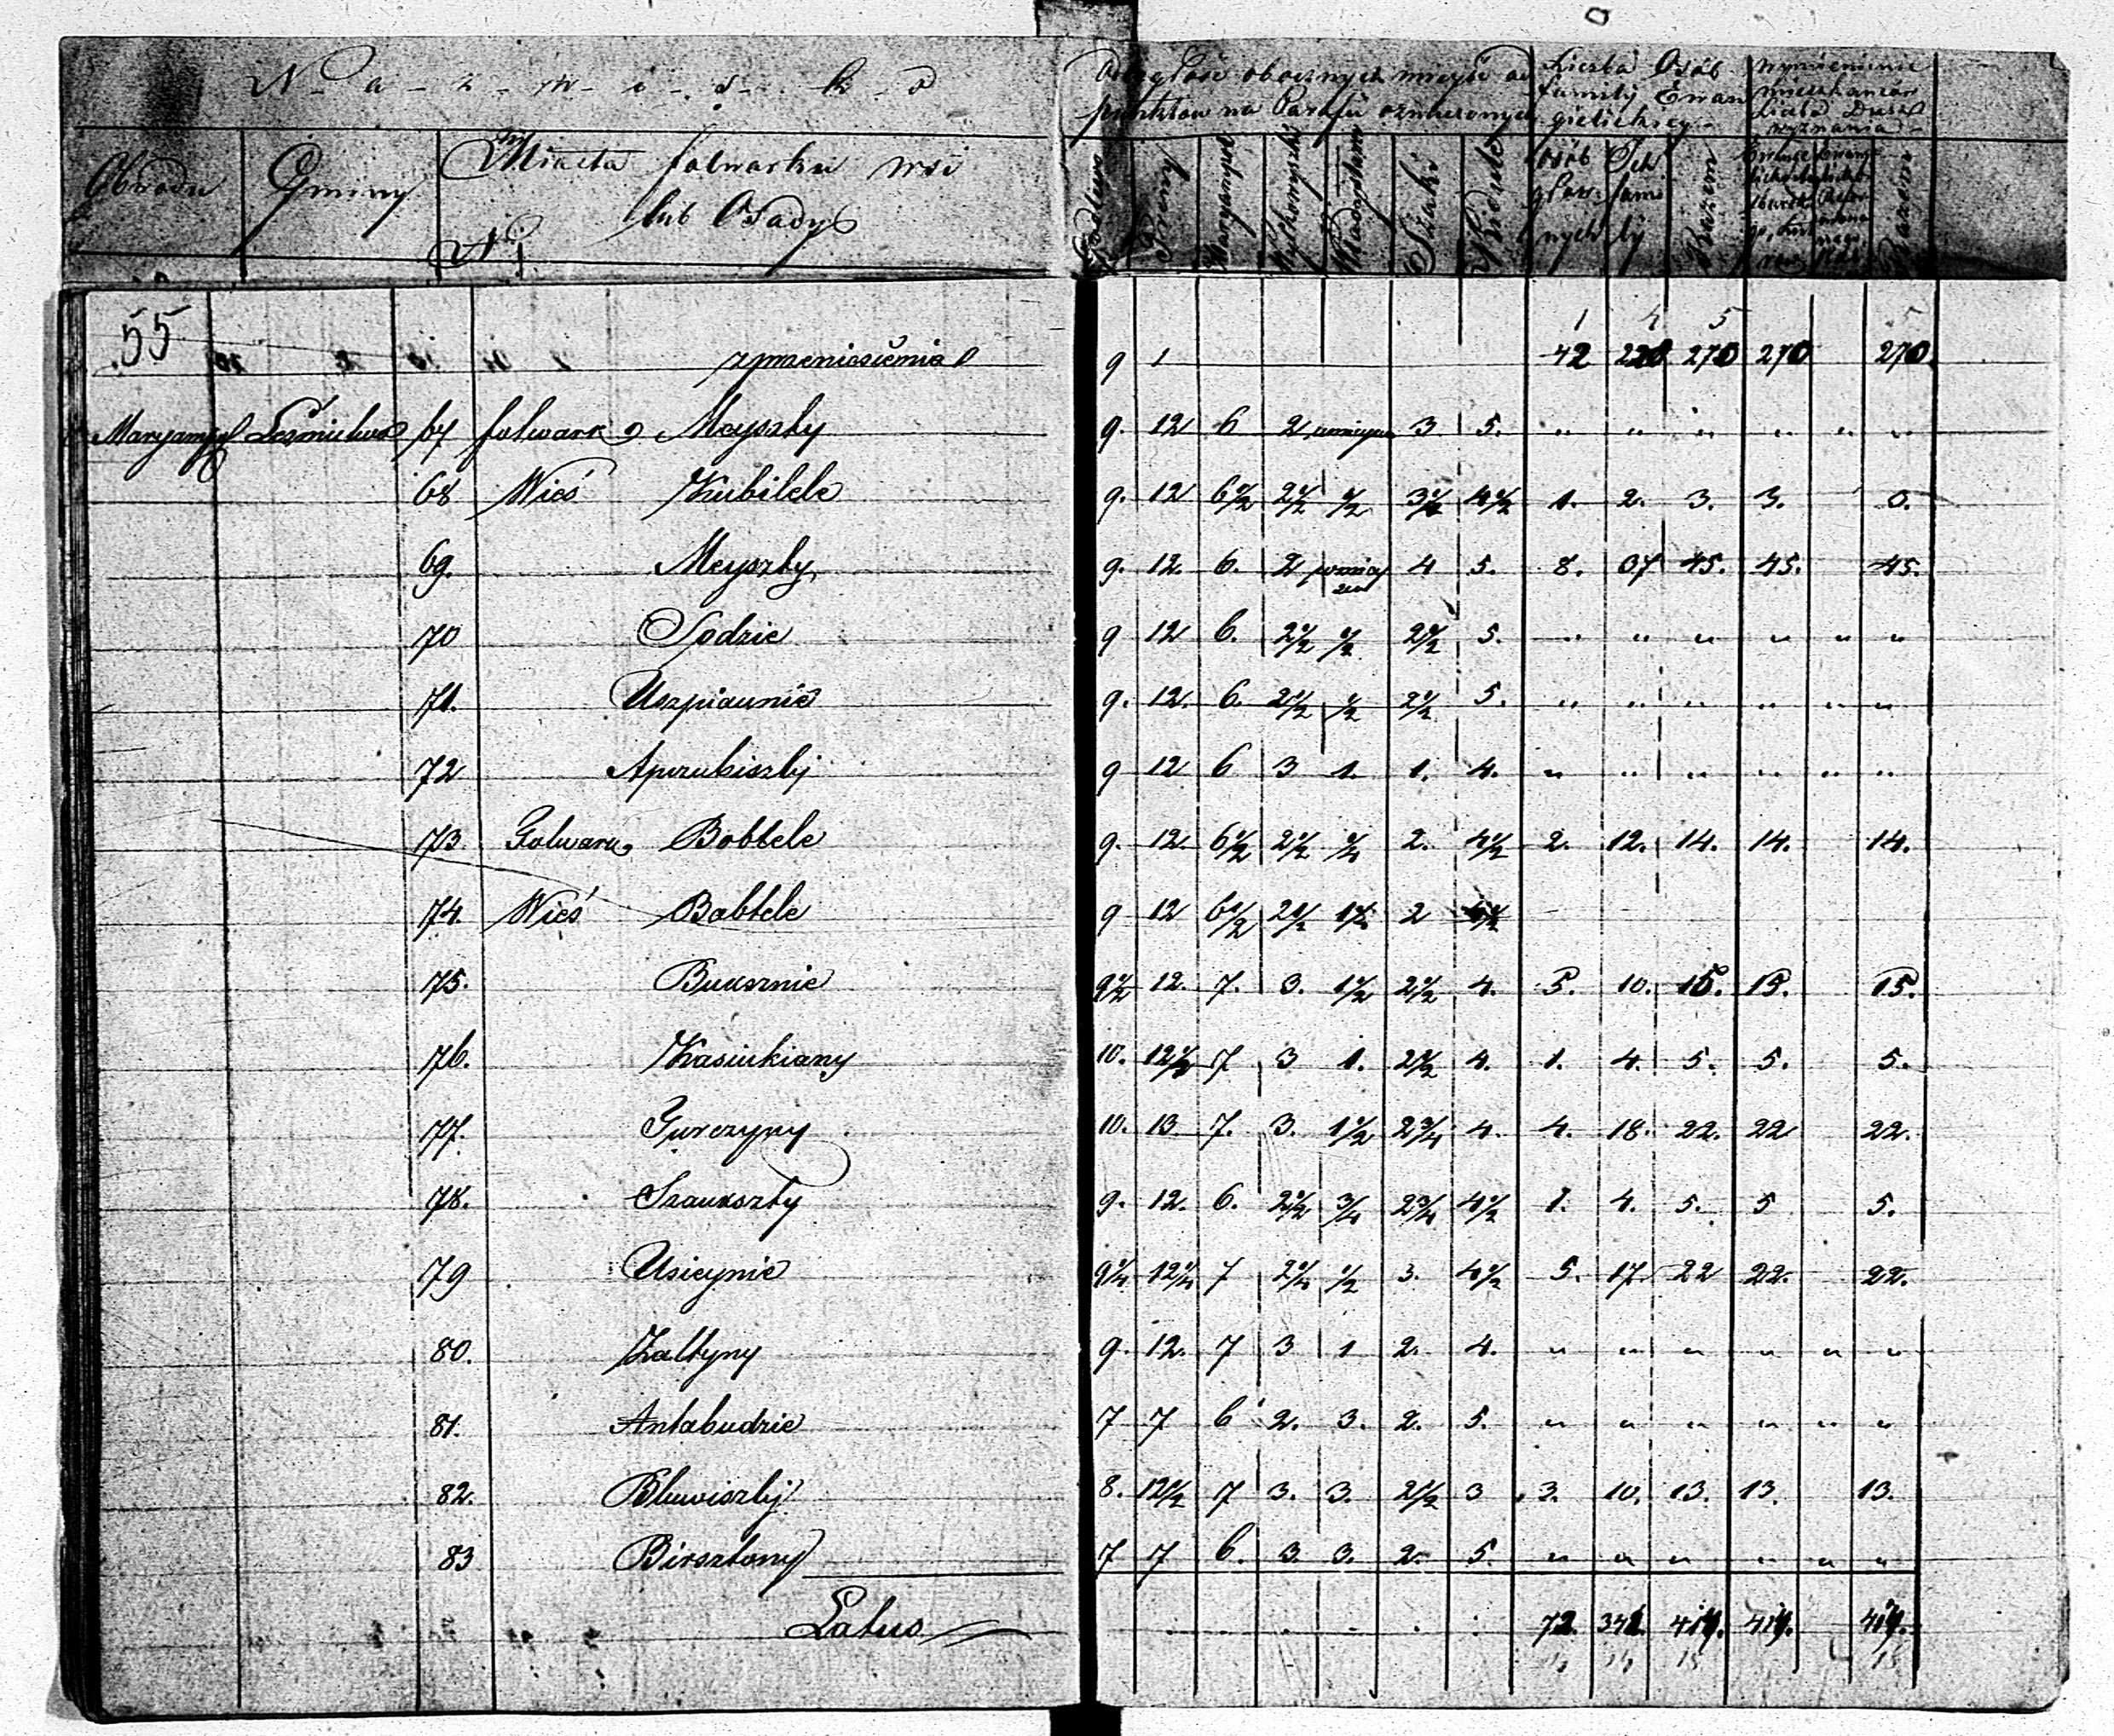 N a z w i s k o
Odległość obecnych mieysc od
punktow na Parafii oznaczonych
Liczba Osób
familij Ewan
gielickiey
wymienienie
mieszkancow
Liczba Dusz
wyznania
Obwodu Gminy Miasta folwarku wsi
lub Osady
N
Maryampol Szaki Razem
osób Ich
głow fami
nych lij
Razem
55
z przeniesienia 9 1 42 228 270 270 270
1 4 5
Maryampol Leśnictwo 67 folwark Meyszty 9. 12 6 2 3. 5. " " " " " "
68 Wieś Kubilele 9. 12 6½ 2½ ½ 3½ 4½ 1. 2. 3. 3. 3.
69. Meyszty 9. 12. 6. 2 4 5. 8. 37 45. 45. 45.
70 Sodzie 9 12 6. 2½ ½ 2½ 5. " " " " " "
71. Uszpiaunie 9. 12. 6. 2½ ½ 2½ 5. " " " " " "
72 Apczukiszki 9 12 6 3 1. 1. 4. " " " " " "
73. Folwark Bobtele 9. 12 6½ 2½ 2. 4½ 2. 12. 14. 14. 14.
74. Wieś Bobtele 9 12 6½ 2½ 2
75. Buksznie 9½ 12. 7. 3. 1½ 2½ 4. 5. 10. 15. 15. 15.
76. Kasiukiany 10. 12½ 7 3 1. 2½ 4. 1. 4. 5. 5. 5.
77. Gurczyny 10. 13 7. 3. 1½ 2¾ 4. 4. 18. 22. 22 22.
78. Szaukszty 9. 12. 6. 2½ ¾ 2¾ 4½ 1. 4. 5. 5 5.
79 Usieynie 9¼ 12¼ 7 2¼ ½ 3. 4½ 5. 17. 22 22. 22.
80. Żaltyny 9. 12. 7 3 1 2. 4. " " " " " "
81. Antabudzie 7 7 6 2. 3. 2. 5. " " " " " "
82. Bluwiszki 8. 12½ 7 3. 3. 2½ 3 3. 10. 13. 13. 13.
83 Birsztany 7 7 6. 3. 3. 2. 5. " " " " " "
Latus 72. 342. 414. 414. 414.